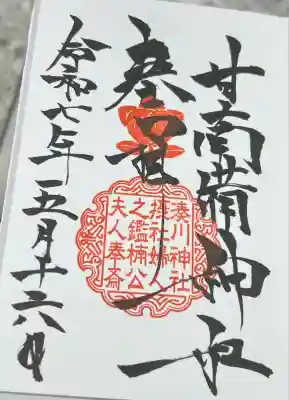 甘南備神社
奉拝
湊川神社
摂社婦人
之鑑楠公
夫人奉斎
令和七年五月十六日